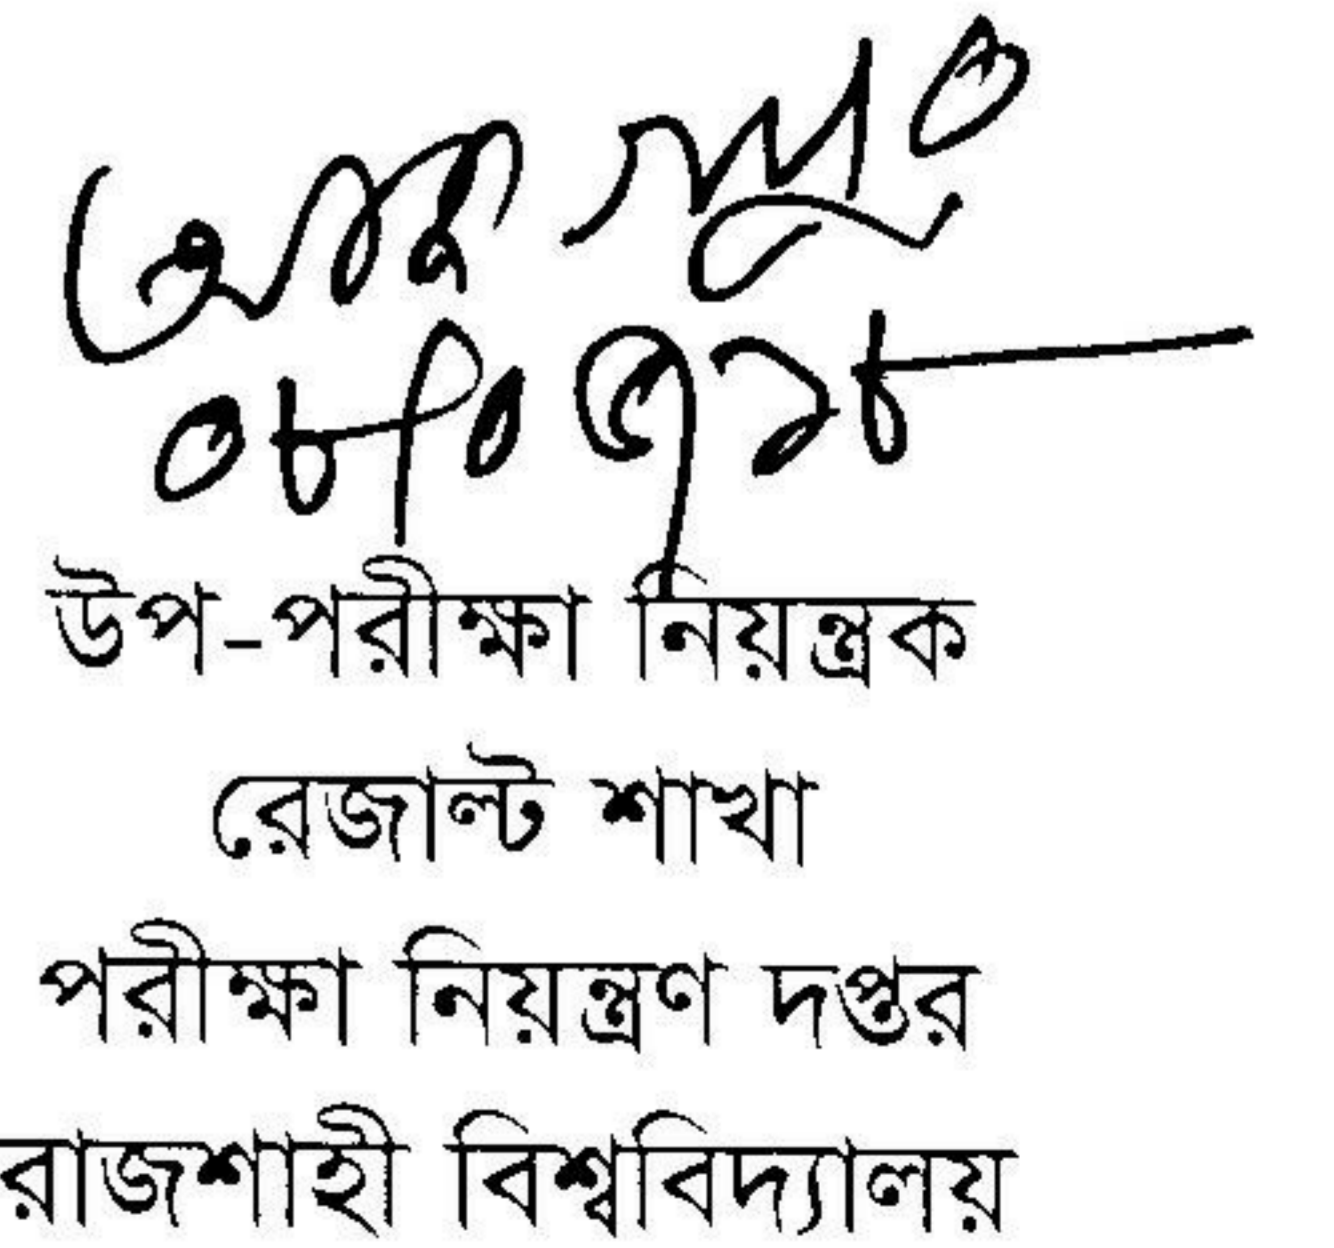 ০৮/০৭/১৮
উপ-পরীক্ষা নিয়ন্ত্রক
রেজাল্ট শাখা
পরীক্ষা নিয়ন্ত্রণ দপ্তর
রাজশাহী বিশ্ববিদ্যালয়